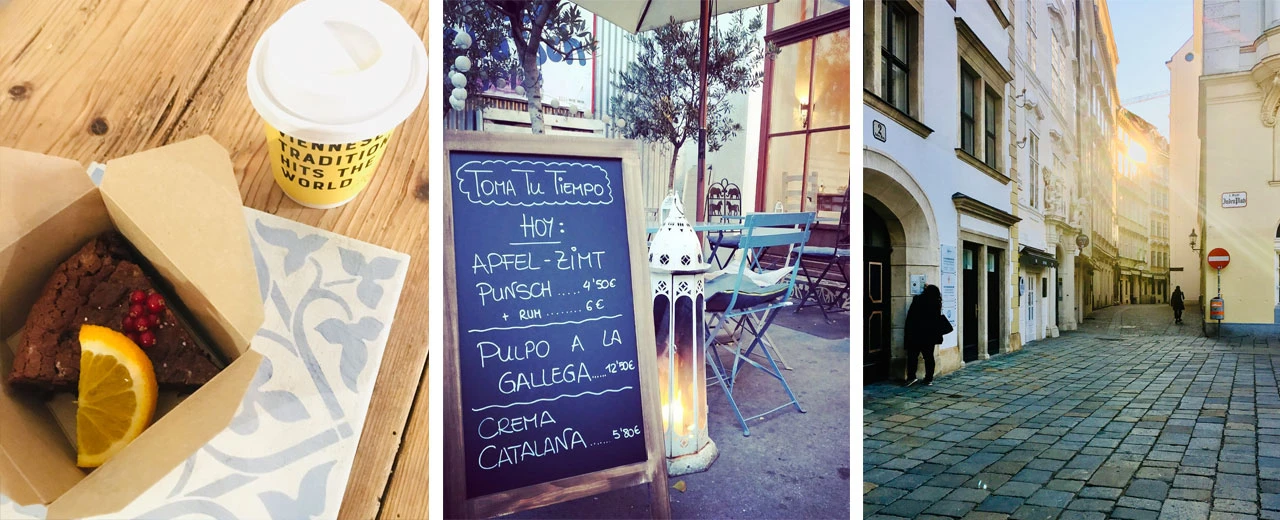 VIENNESE
TRADITION
HITS THE
WORLD
TOMA TU TIEMPO
HOY:
APFEL-ZIMT
PUNSCH ..... 4'50€
+ RUH ........ 6€
PULPO A LA
GALLEGA ..... 12'50€
CREMA
CATALANA ...... 5'80€
2
Judenplatz